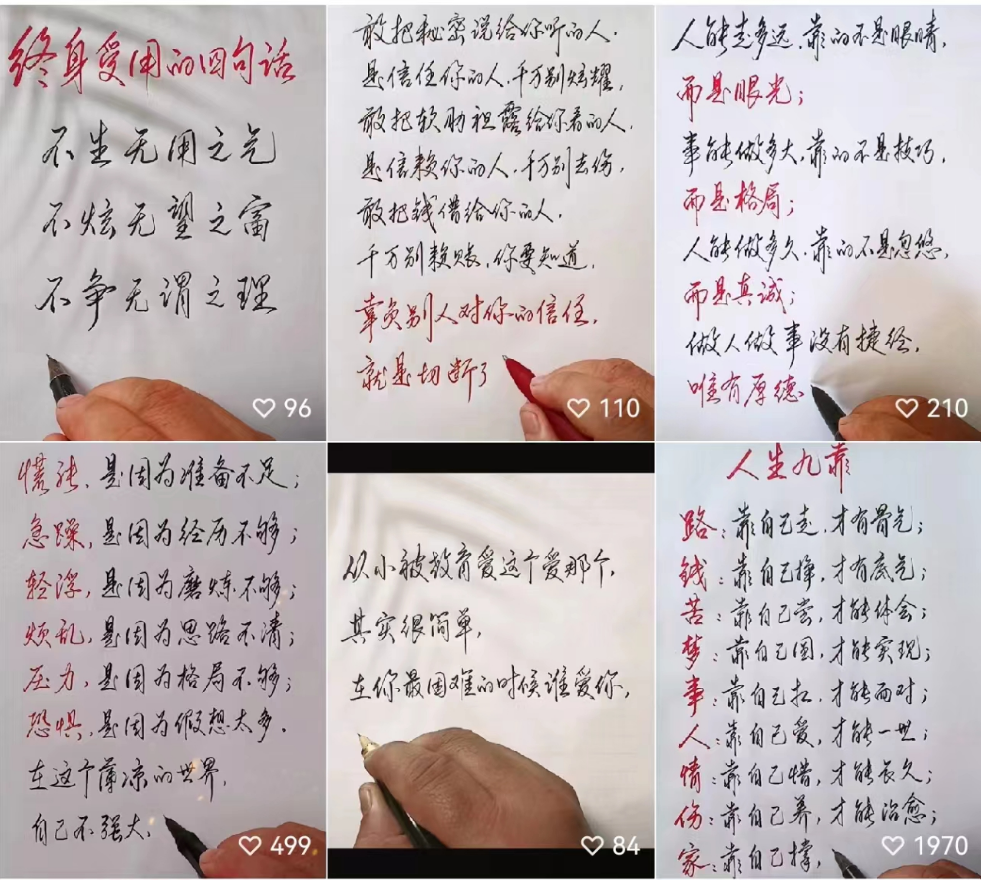 终身受用的四句话
不生无用之气
不炫无望之富
不争无谓之理
96
敢把秘密说给你听的人.
是信任你的人,千万别炫耀,
敢把软肋袒露给你看的人,
是信赖你的人,千万别去伤,
敢把钱借给你的人.
千万别赖账,你要知道,
辜负别人对你的信任,
就是切断了
110
人能走多远,靠的不是眼睛,
而是眼光;
事能做多大,靠的不是技巧,
而是格局;
人能做多久,靠的不是忽悠,
而是真诚;
做人做事没有捷径,
唯有厚德
210
慌张,是因为准备不足;
急躁,是因为经历不够;
轻浮,是因为磨炼不够;
烦乱,是因为思路不清;
压力,是因为格局不够;
恐惧,是因为假想太多.
在这个薄凉的世界,
自己不强大,
499
从小被教育爱这个爱那个,
其实很简单,
在你最困难的时候谁爱你,
84
人生九靠
路:靠自己走,才有骨气;
钱:靠自己挣,才有底气;
苦:靠自己尝,才能体会;
梦:靠自己圆,才能实现;
事:靠自己扛,才能面对;
人:靠自己爱,才能一世;
情:靠自己惜,才能长久;
伤:靠自己养,才能治愈;
家:靠自己撑,
1970